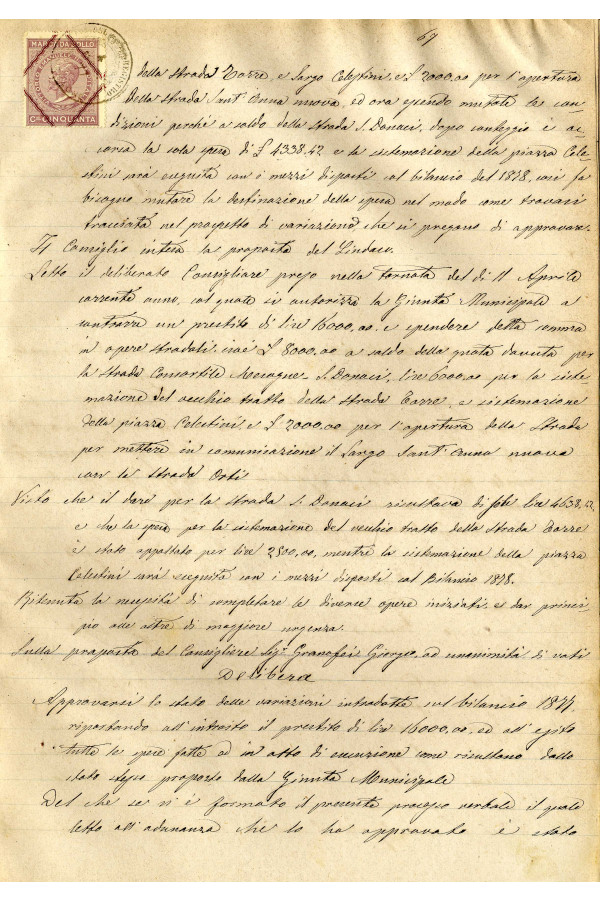 67
MARCA DA BOLLO
Cmi CINQUANTA
della strada Torre, e Largo Celestini, e £ 2000.00 per l'apertura
della strada Sant'Anna nuova, ed ora essendo mutate le con=
dizioni perchè a saldo della strada S. Donaci, dopo conteggio è
la sola spesa di £ 4338.42 e la sistemazione della piazza Cele=
stini sarà eseguita con i mezzi disposti sul bilancio del 1878, così fa
bisogno mutare la destinazione della spesa nel modo come trovasi
tracciata nel prospetto di variazione che si pregano di approvare.
Il Consiglio intesa la proposta del Sindaco.
Letto il deliberato Consigliare preso nella tornata del dì 11 Aprile
corrente anno, col quale si autorizza la Giunta Municipale a
contrarre un prestito di lire 16000,00. e spendere detta somma
in opere stradali. cioè £ 8000,00 a saldo della quota dovuta per
la strada Consortile Mesagne=S. Donaci, lire 6000,00 per la siste=
mazione del vecchio tratto della strada Torre, e sistemazione
della piazza Celestini, e £ 2000,00 per l'apertura della Strada
per mettere in comunicazione il Largo Sant'Anna nuova
con la strada Orti
Visto che il dare per la strada S. Donaci risultava di sole lire 4638,42,
e che la spesa per la sistemazione del vecchio tratto della Strada Torre
è stato appaltato per lire 2500,00, mentre la sistemazione della piazza
Celestini sarà eseguita con i mezzi disposti sul Bilancio 1878.
Ritenuta la necessità di completare le diverse opere iniziate, e dar princi=
pio alle altre di maggiore urgenza.
Sulla proposta del Consigliere Sigr Granafei Giorgio, ad unanimità di voti
Delibera
Approvarsi lo stato delle variazioni introdotte sul bilancio 1877,
riportando all'introito il prestito di lire 16000,00, ed all'esito
tutte le spese fatte ed in atto di esecuzione come risultano dallo
stato stesso proposto dalla Giunta Municipale
Del che se ne è formato il presente processo verbale il quale
letto all'adunanza che lo ha approvato è stato